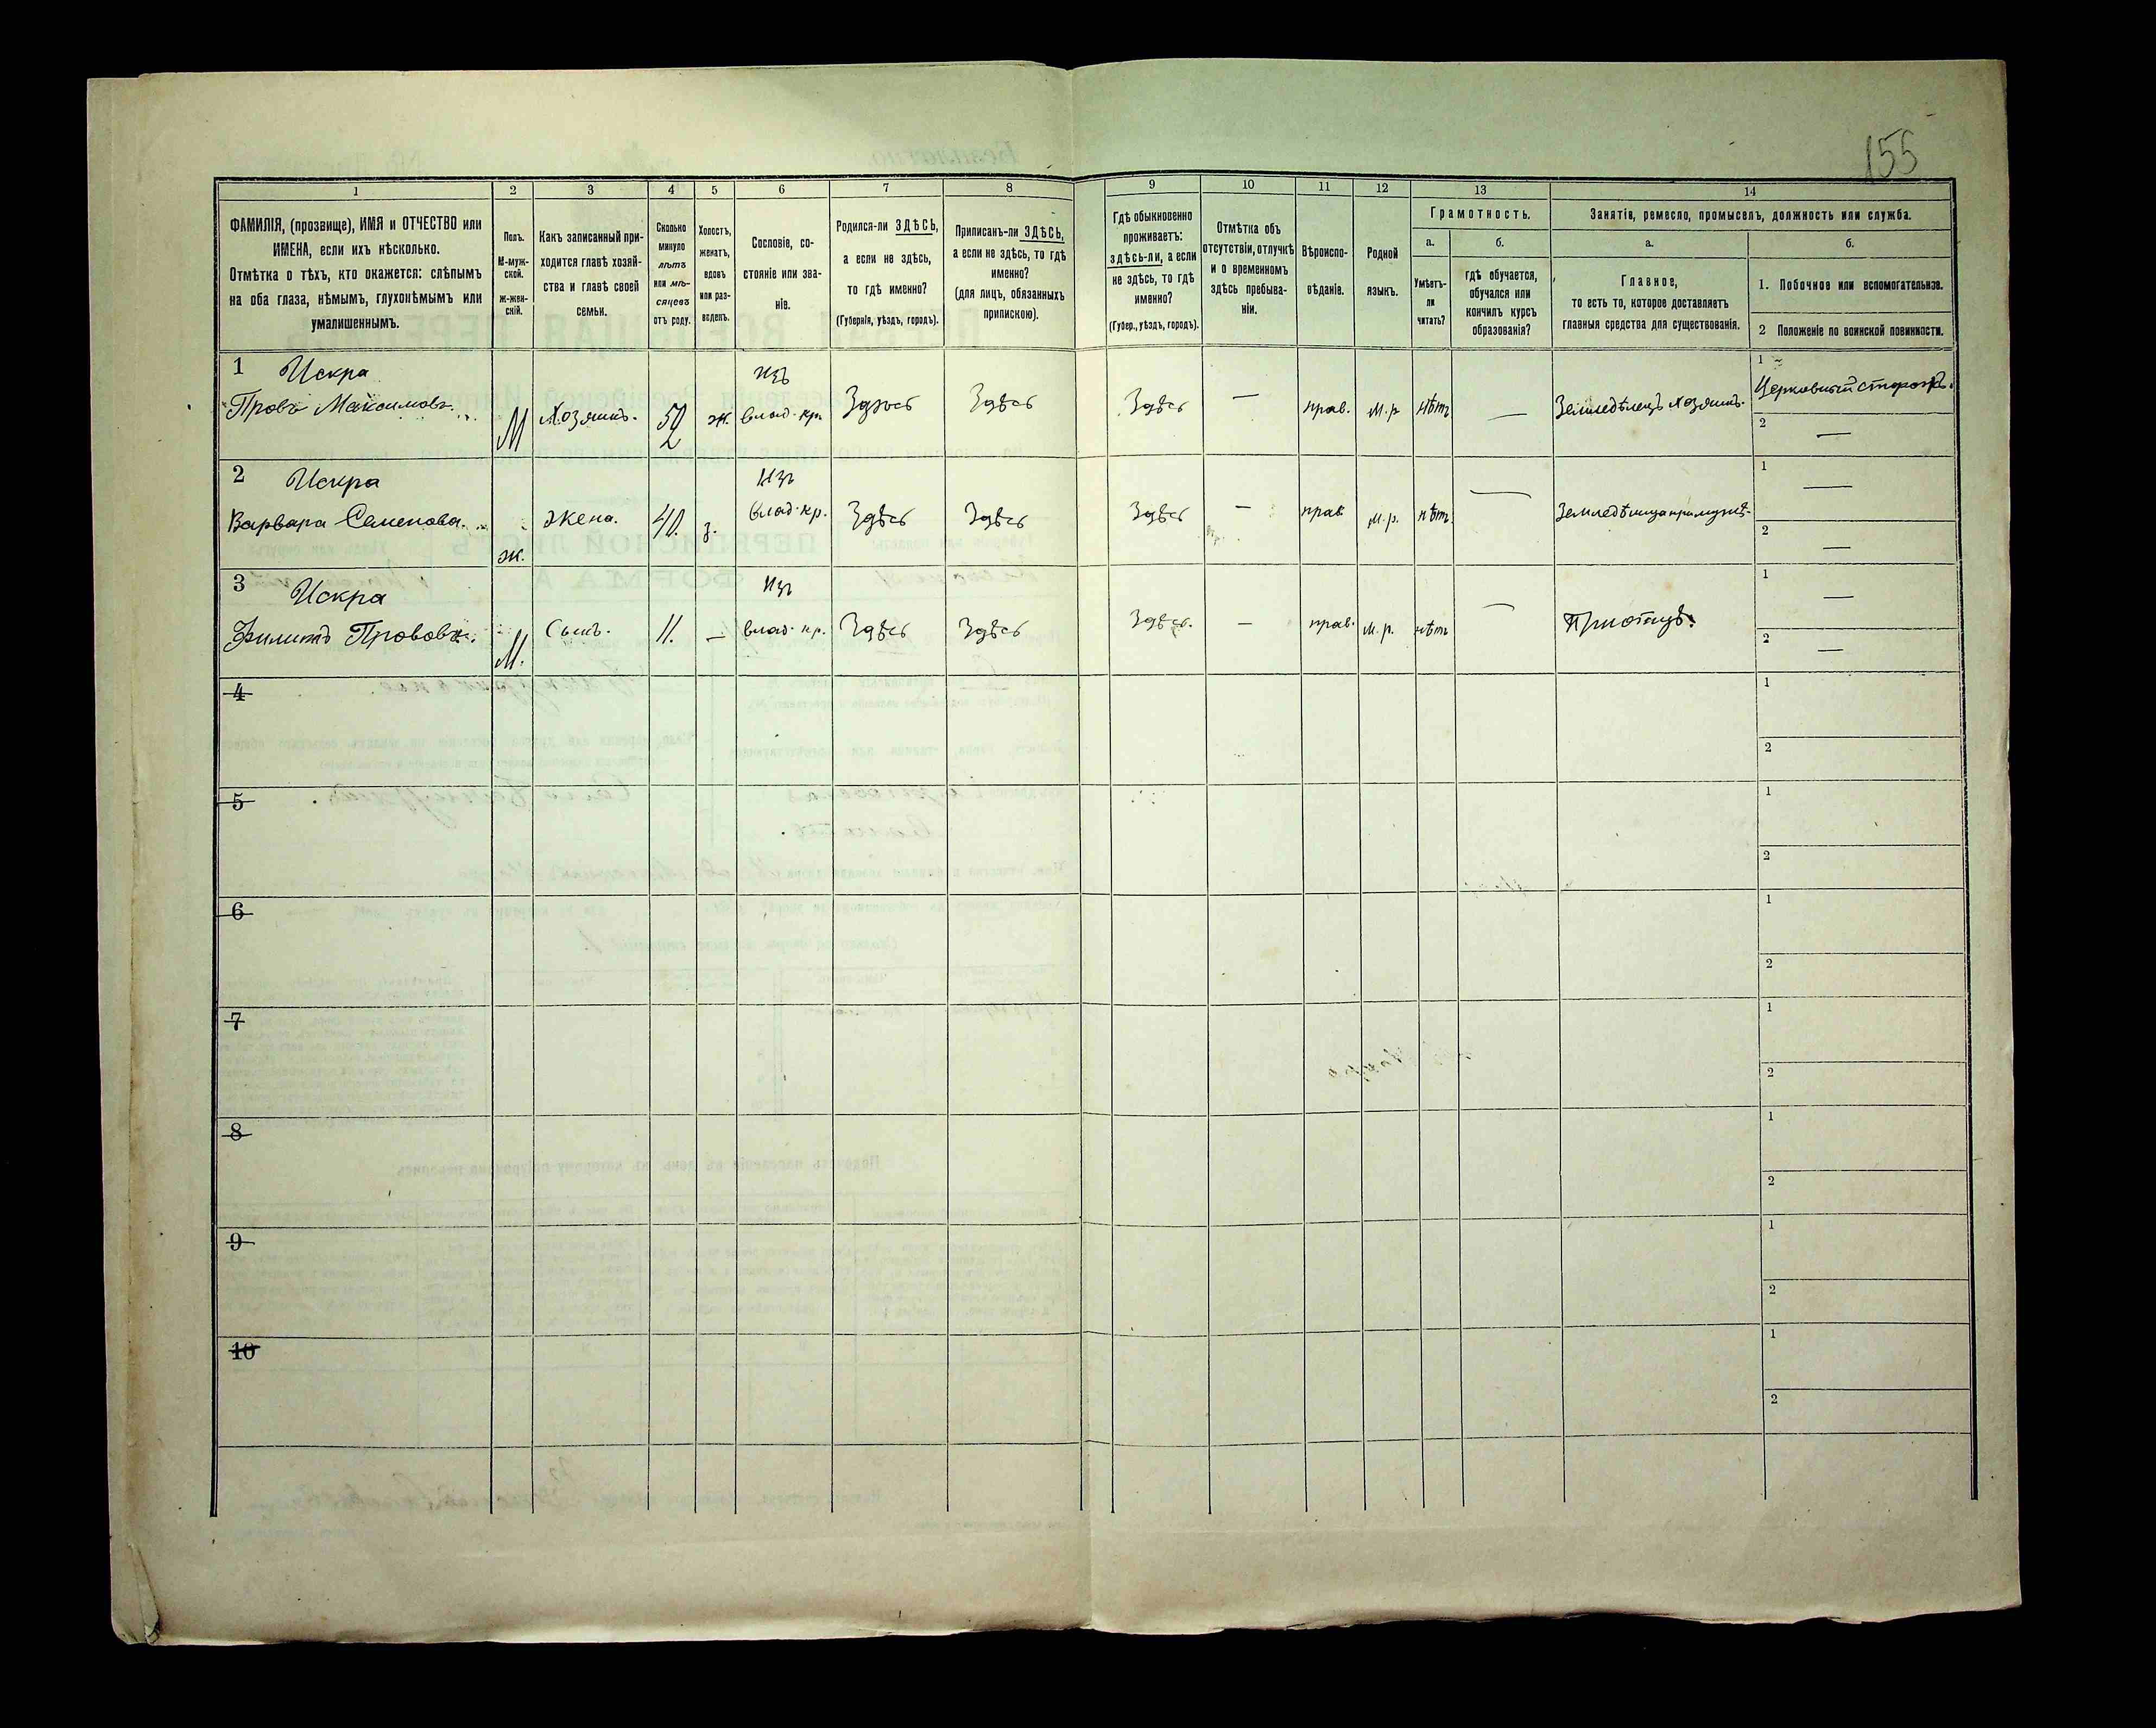 155
1 2 3 4 5 6 7 8 9 10 11 12 13 14
ФАМИЛІЯ, (прозвище), ИМЯ и ОТЧЕСТВО или
ИМЕНА, если ихъ нѣсколько.
Отмѣтка о тѣхъ, кто окажется: слѣпымъ
на оба глаза, нѣмымъ, глухонѣмымъ или
умалишеннымъ.
Полъ.
М-муж-
ской.
Ж-жен-
скій.
Какъ записанный при-
ходится главѣ хозяй-
ства и главѣ своей
семьи.
Сколько
минуло
лѣтъ
или мѣ-
сяцевъ
отъ роду.
Холостъ,
женатъ,
вдовъ
или раз-
веденъ.
Сословіе, со-
стояніе или зва-
ніе.
Родился-ли ЗДѢСЬ,
а если не здѣсь,
то гдѣ именно?
(Губернія, уѣздъ, городъ).
Приписанъ-ли ЗДѢСЬ,
а если не здѣсь, то гдѣ
именно?
(для лицъ, обязанныхъ
припискою).
Гдѣ обыкновенно
проживаетъ:
здѣсь-ли, а если
не здѣсь, то гдѣ
именно?
(Губер., уѣздъ, городъ).
Отмѣтка объ
отсутствіи, отлучкѣ
и о временномъ
здѣсь пребыва-
ніи.
Вѣроиспо-
вѣданіе.
Родной
языкъ.
Грамотность.
а.
Умѣетъ-
ли
читать?
б.
гдѣ обучается,
обучался или
кончилъ курсъ
образованія?
Занятія, ремесло, промыселъ, должность или служба.
а.
Главное,
то есть то, которое доставляетъ
главныя средства для существованія.
б.
1. Побочное или вспомогательное.
2 Положеніе по воинской повинности.
1 Искра изъ 1
Провъ Максимовъ. М Хозяинъ. 52 ж. влад. кр. Здѣсь Здѣсь Здѣсь — прав. м.р нѣтъ — Земледѣлецъ хозяинъ. Церковный сторожъ.
2 —
2 Искра изъ 1 —
Варвара Семенова. ж. Жена. 40. з. влад. кр. Здѣсь Здѣсь Здѣсь — прав. м.р. нѣтъ — Земледѣлица при мужѣ.
2 —
3 Искра изъ 1 —
Филиппъ Прововъ. М. Сынъ. 11. — влад. кр. Здѣсь Здѣсь Здѣсь. — прав. м.р. нѣтъ — При отцѣ.
2 —
4 1
2
5 1
2
6 1
2
7 1
2
8 1
2
9 1
2
10 1
2